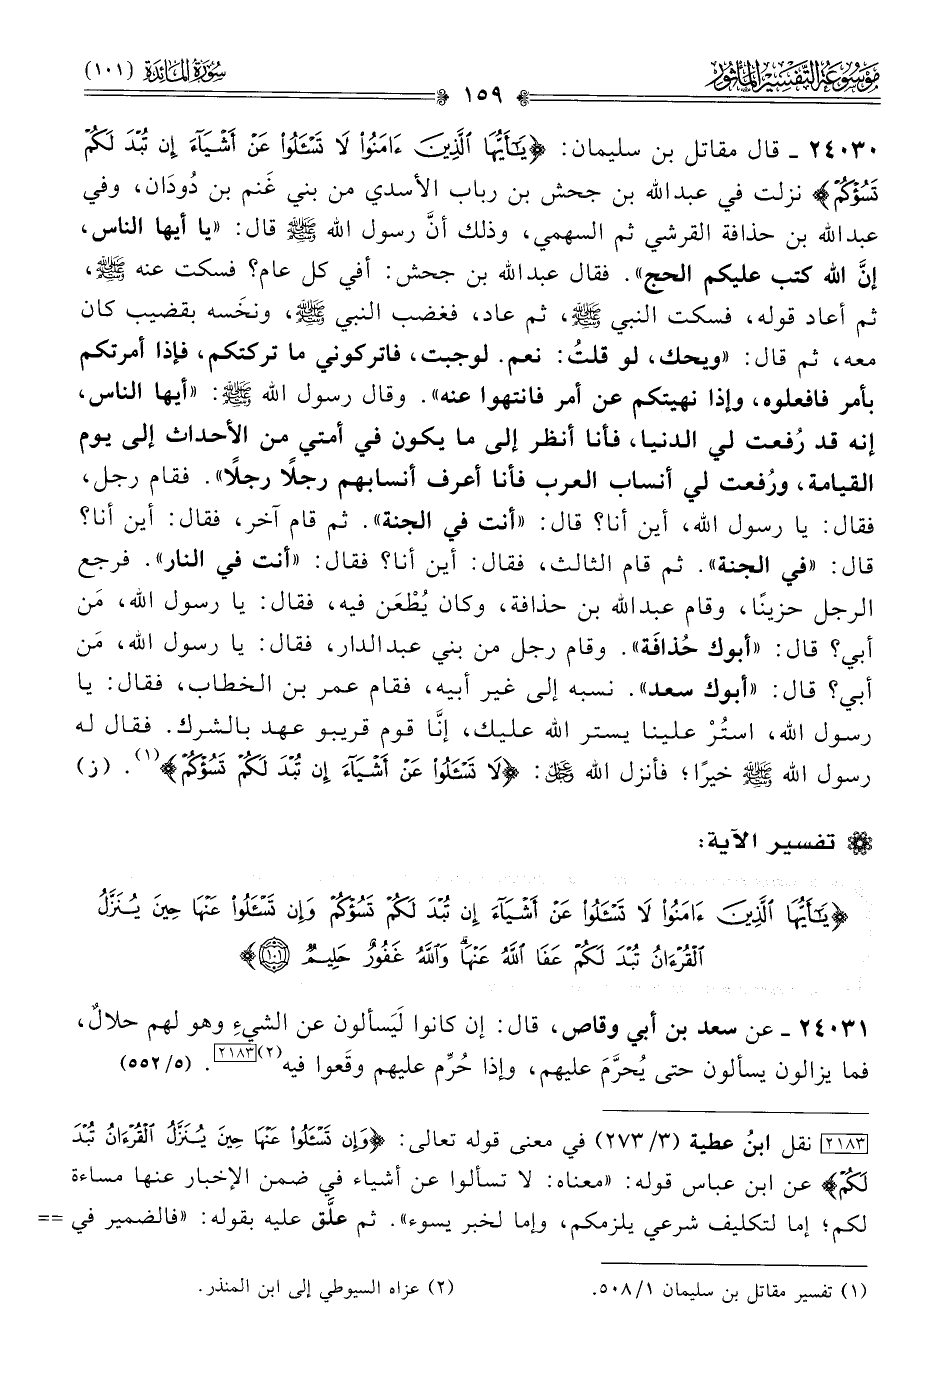 مَوْسُوعَة التَّفْسِيرِ المَأْثُورِ
سُورَةُ المَائِدَة (١٠١)
١٥٩
٢٤٠٣٠ ـ قال مقاتل بن سليمان: ﴿يَـٰٓأَيُّهَا ٱلَّذِينَ ءَامَنُوا۟ لَا تَسْـَٔلُوا۟ عَنْ أَشْيَآءَ إِن تُبْدَ لَكُمْ
تَسُؤْكُمْ﴾ نزلت في عبدالله بن جحش بن رباب الأسدي من بني غَنم بن دُودَان، وفي
عبدالله بن حذافة القرشي ثم السهمي، وذلك أنَّ رسول الله ﷺ قال: «يا أيها الناس،
إنَّ الله كتب عليكم الحج». فقال عبدالله بن جحش: أفي كل عام؟ فسكت عنه ﷺ،
ثم أعاد قوله، فسكت النبي ﷺ، ثم عاد، فغضب النبي ﷺ، ونخَسه بقضيب كان
معه، ثم قال: «ويحك، لو قلتُ: نعم. لوجبت، فاتركوني ما تركتكم، فإذا أمرتكم
بأمر فافعلوه، وإذا نهيتكم عن أمر فانتهوا عنه». وقال رسول الله ﷺ: «أيها الناس،
إنه قد رُفعت لي الدنيا، فأنا أنظر إلى ما يكون في أمتي من الأحداث إلى يوم
القيامة، ورُفعت لي أنساب العرب فأنا أعرف أنسابهم رجلًا رجلًا». فقام رجل،
فقال: يا رسول الله، أين أنا؟ قال: «أنت في الجنة». ثم قام آخر، فقال: أين أنا؟
قال: «في الجنة». ثم قام الثالث، فقال: أين أنا؟ فقال: «أنت في النار». فرجع
الرجل حزينًا، وقام عبدالله بن حذافة، وكان يُطْعَن فيه، فقال: يا رسول الله، مَن
أبي؟ قال: «أبوك حُذافَة». وقام رجل من بني عبدالدار، فقال: يا رسول الله، مَن
أبي؟ قال: «أبوك سعد». نسبه إلى غير أبيه، فقام عمر بن الخطاب، فقال: يا
رسول الله، استُرْ علينا يستر الله عليك، إنَّا قوم قريبو عهد بالشرك. فقال له
رسول الله ﷺ خيرًا؛ فأنزل الله ﷻ: ﴿لَا تَسْـَٔلُوا۟ عَنْ أَشْيَآءَ إِن تُبْدَ لَكُمْ تَسُؤْكُمْ﴾(١). (ز)
تفسير الآية:
﴿يَـٰٓأَيُّهَا ٱلَّذِينَ ءَامَنُوا۟ لَا تَسْـَٔلُوا۟ عَنْ أَشْيَآءَ إِن تُبْدَ لَكُمْ تَسُؤْكُمْ وَإِن تَسْـَٔلُوا۟ عَنْهَا حِينَ يُنَزَّلُ
ٱلْقُرْءَانُ تُبْدَ لَكُمْ عَفَا ٱللَّهُ عَنْهَا ۗ وَٱللَّهُ غَفُورٌ حَلِيمٌ ١٠١﴾
٢٤٠٣١ ـ عن سعد بن أبي وقاص، قال: إن كانوا لَيَسألون عن الشيءِ وهو لهم حلالٌ،
فما يزالون يسألون حتى يُحرَّمَ عليهم، وإذا حُرِّم عليهم وقَعوا فيه(٢)[٢١٨٣]. (٥/ ٥٥٢)
[٢١٨٣] نقل ابنُ عطية (٣/ ٢٧٣) في معنى قوله تعالى: ﴿وَإِن تَسْـَٔلُوا۟ عَنْهَا حِينَ يُنَزَّلُ ٱلْقُرْءَانُ تُبْدَ
لَكُمْ﴾ عن ابن عباس قوله: «معناه: لا تسألوا عن أشياء في ضمن الإخبار عنها مساءة
لكم؛ إما لتكليف شرعي يلزمكم، وإما لخبر يسوء». ثم علَّق عليه بقوله: «فالضمير في ==
(١) تفسير مقاتل بن سليمان ١/ ٥٠٨.
(٢) عزاه السيوطي إلى ابن المنذر.